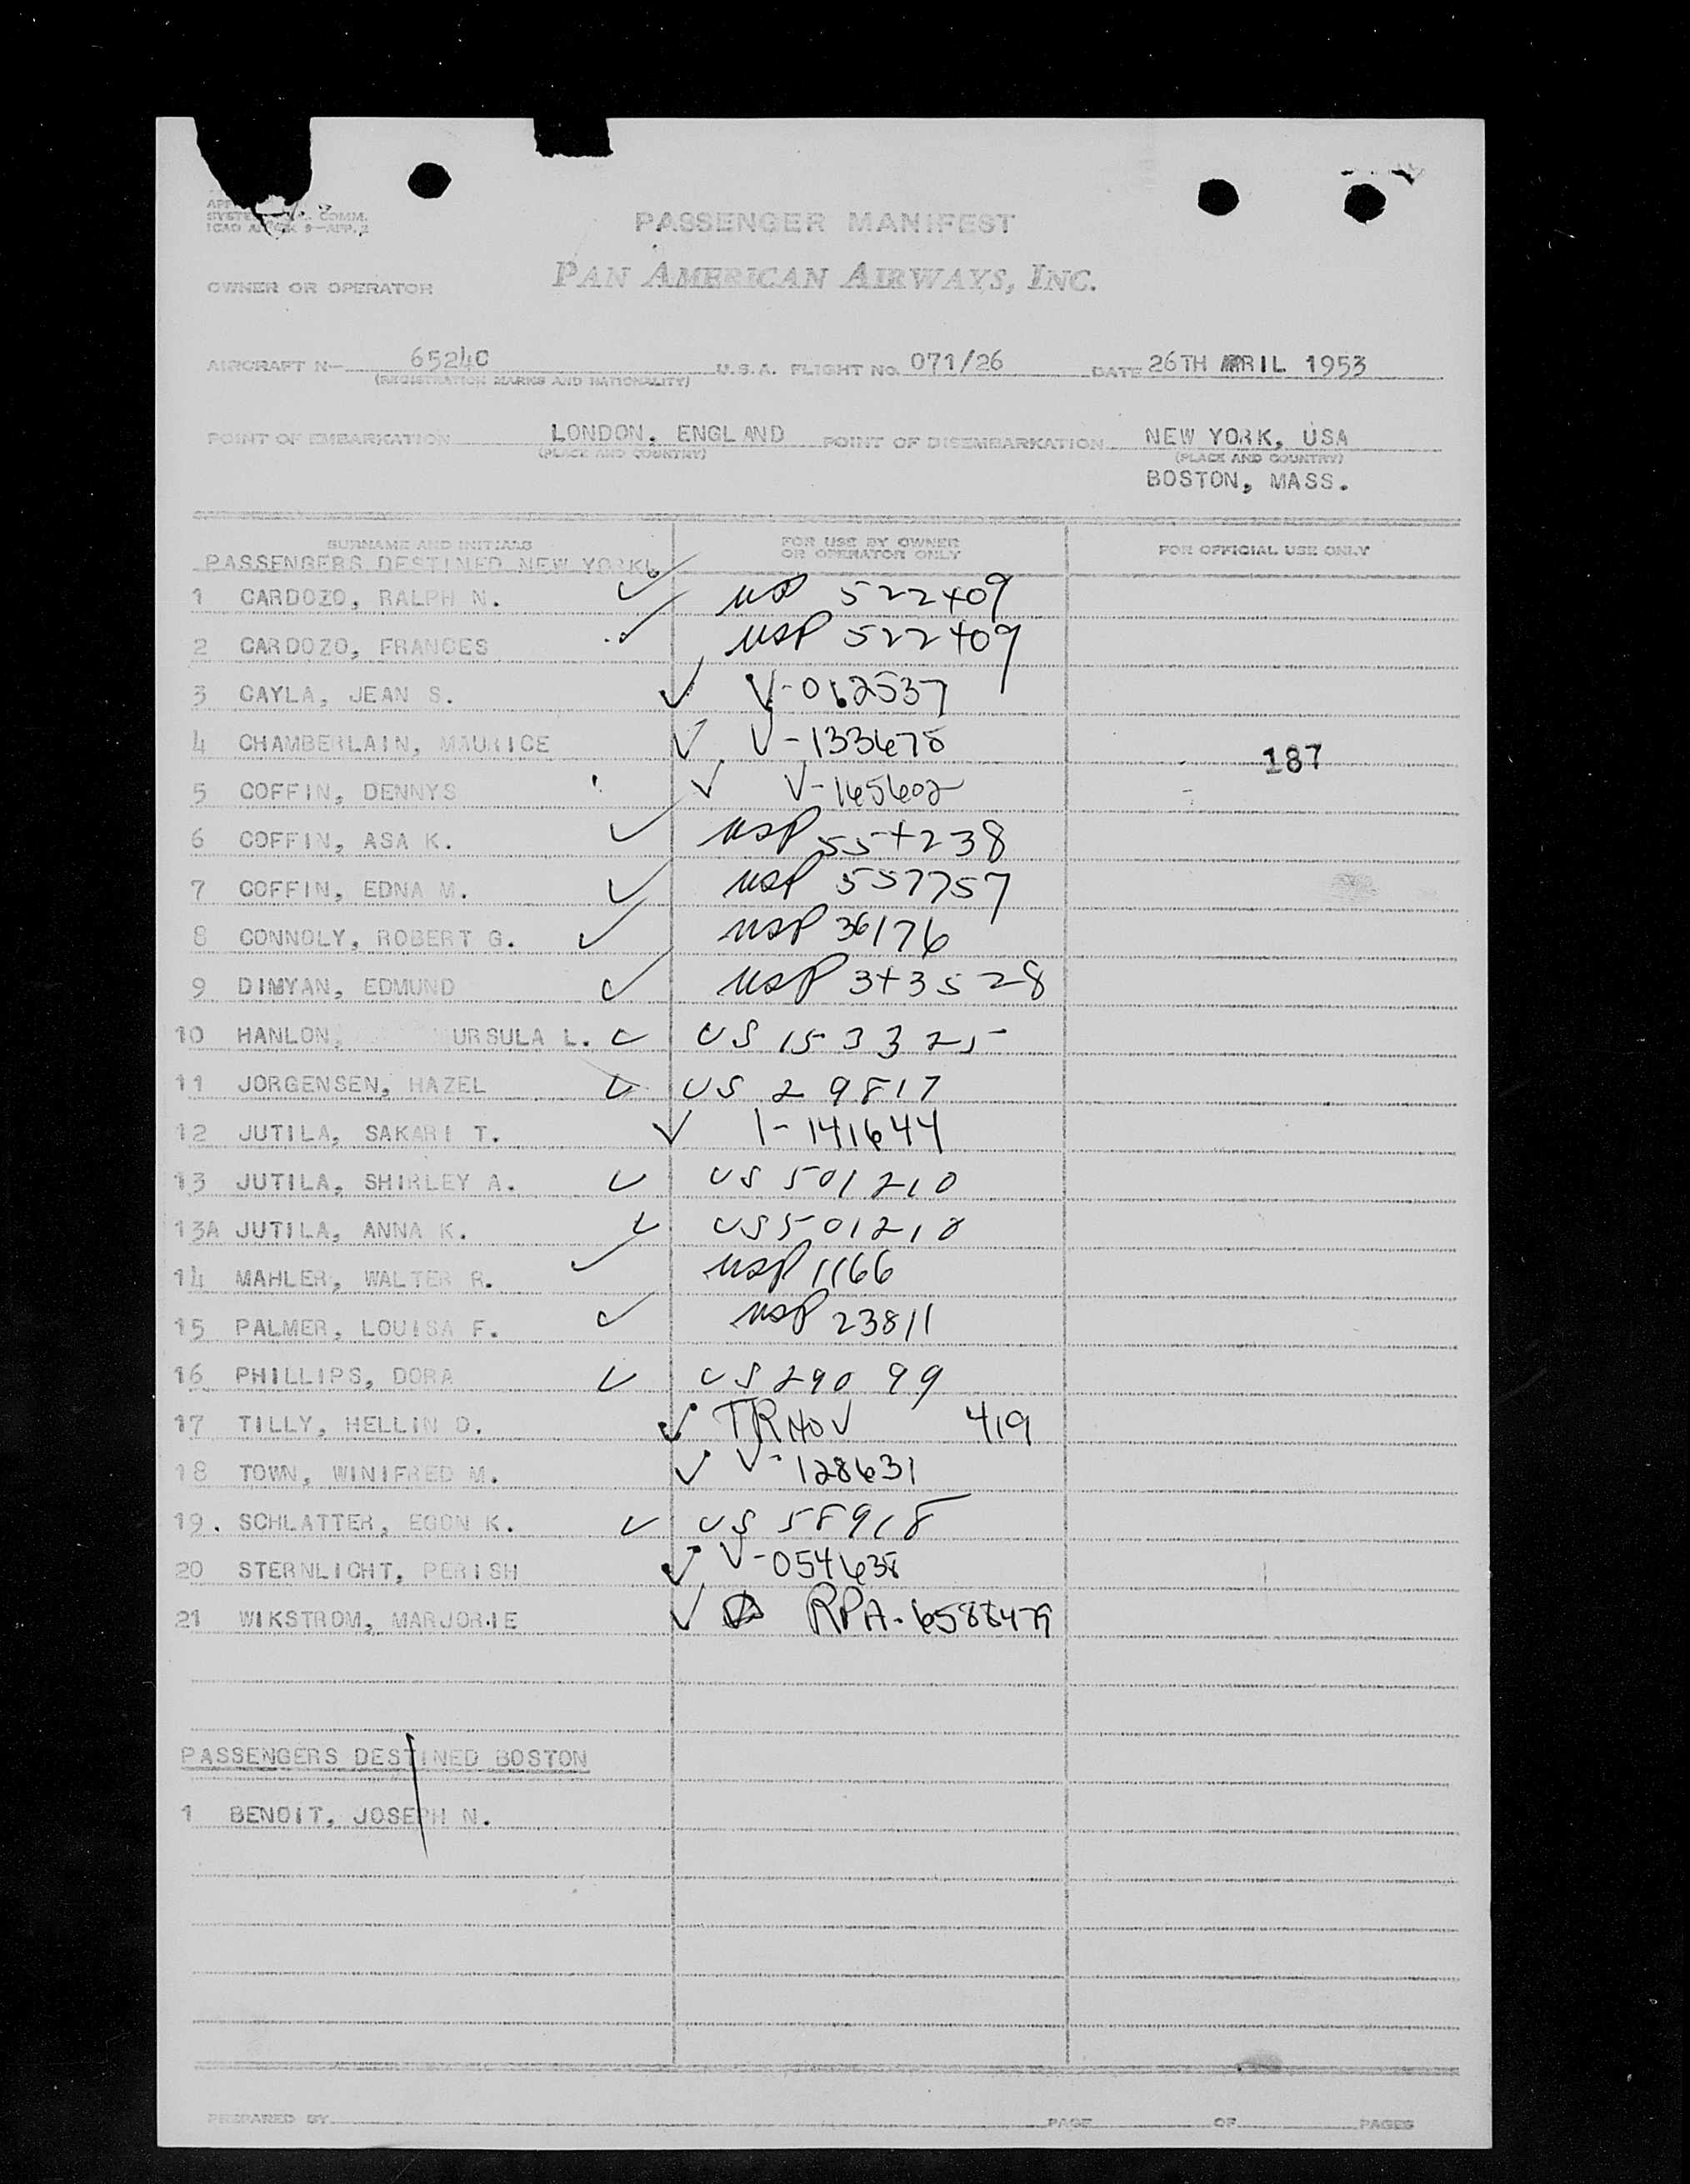 PASSENGER MANIFEST
OWNER OR OPERATOR PAN AMERICAN AIRWAYS, INC.
AIRCRAFT N— 6524C U.S.A. FLIGHT NO. 071/26 DATE 26TH APRIL 1953
(REGISTRATION MARKS AND NATIONALITY)
POINT OF EMBARKATION LONDON, ENGLAND POINT OF DISEMBARKATION NEW YORK, USA
(PLACE AND COUNTRY) (PLACE AND COUNTRY)
BOSTON, MASS.
SURNAME AND INITIALS FOR USE BY OWNER OR OPERATOR ONLY FOR OFFICIAL USE ONLY
PASSENGERS DESTINED NEW YORK
1 CARDOZO, RALPH N. USP 522409
2 CARDOZO, FRANCES USP 522409
3 CAYLA, JEAN S. V-062537
4 CHAMBERLAIN, MAURICE V-133678 187
5 COFFIN, DENNYS V-165602
6 COFFIN, ASA K. USP 554238
7 COFFIN, EDNA M. USP 557757
8 CONNOLY, ROBERT G. USP 36176
9 DIMYAN, EDMUND USP 343528
10 HANLON, URSULA L. US 153325
11 JORGENSEN, HAZEL US 29817
12 JUTILA, SAKARI T. I-141644
13 JUTILA, SHIRLEY A. US 501210
13A JUTILA, ANNA K. US 501210
14 MAHLER, WALTER R. USP 1166
15 PALMER, LOUISA F. USP 23811
16 PHILLIPS, DORA US 29099
17 TILLY, HELLIN D. 419
18 TOWN, WINIFRED M. V-128631
19. SCHLATTER, EGON K. US 58918
20 STERNLICHT, PERISH V-054638
21 WIKSTROM, MARJORIE RPA-6588479
PASSENGERS DESTINED BOSTON
1 BENOIT, JOSEPH N.
PREPARED BY PAGE OF PAGES